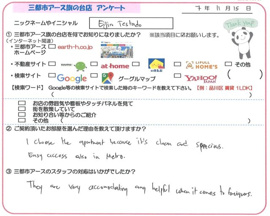 三都市アース旗の台店 アンケート
7年11月15日
ニックネームやイニシャル
Eijin
① 三都市アース旗の台店を何でお知りになりましたか? ※該当項目に☑お願いします。
(インターネット関連)
三都市アース ホームページ earth-f.co.jp
不動産サイト at home HOME'S その他 ( )
検索サイト Google グーグルマップ YAHOO! JAPAN
【検索ワード】 Google等の検索サイトで検索した時のキーワードを教えて下さい。【例:品川区 賃貸 1LDK】
( )
お店の雰囲気や看板やタッチパネルを見て
街を散策していて
お知り合い等からのご紹介
その他 ( )
② ご契約頂いたお部屋を選んだ理由を教えて頂けますか?
I choose the apartment because it's clean and spacious.
Easy access also in Metro.
③ 三都市アースのスタッフの対応はいかがでしたか?
They are very accomodating and helpful when it comes to foreigners.